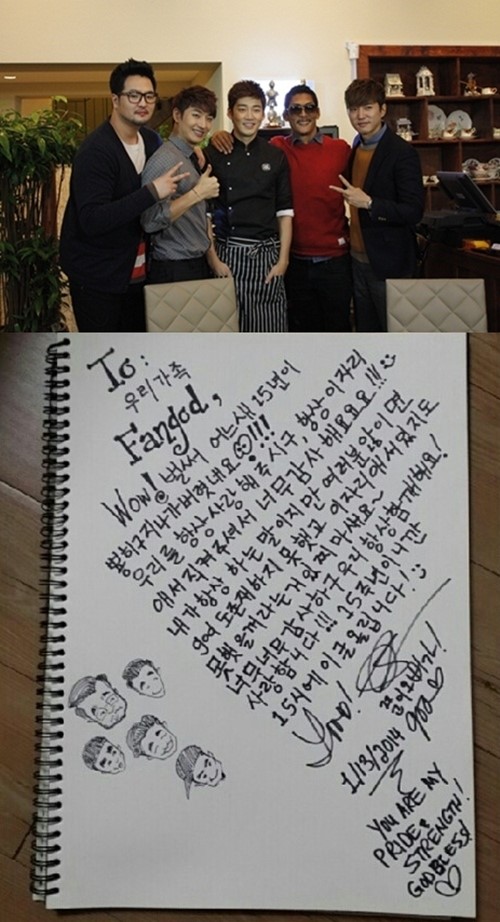 To:
우리가족
Fangod,
Wow! 벌써 어느새 15년이
훌러지나가버렸네요 !!!
우리를 항상 사랑해주시구, 항상 이자리
에서 직켜주셔서 너무 감사해요요요!!!
내가 항상 하는 말이지만 여러분 않이면
god 도 존재하지 못했고 이자리에 서있지도
못했을게라는거 잊찌 마세요~
너무너무 감사하구 우리 항상 함게해요!
사랑합니다!!! 15주년이니간
15시에 이글 올립니다!
1/13/2014
god
YOU ARE MY
PRIDE &
STRENGTH!
GOD BLESS!